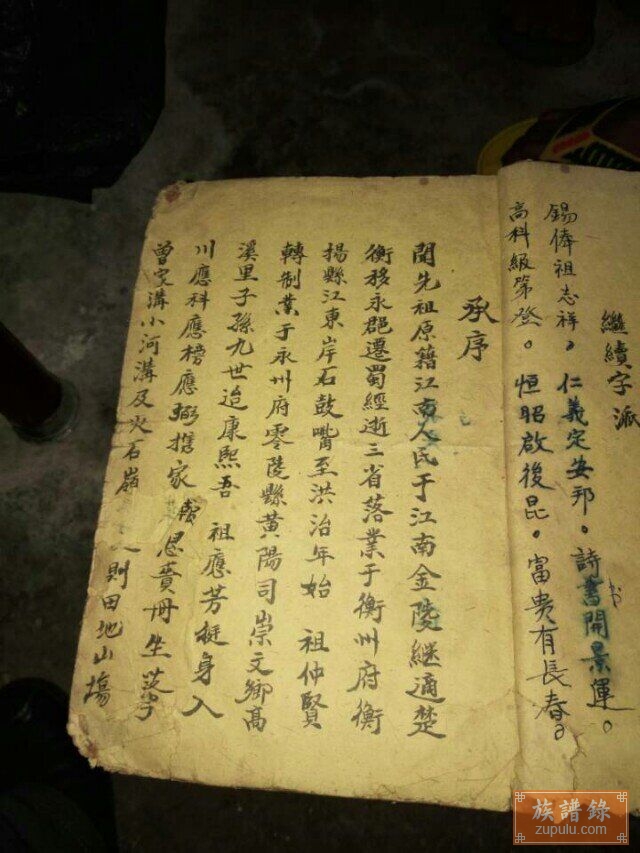 繼續字派
錫俸祖志祥。仁義定安邦。詩書開景運。
高科級第登。恒昭啟後昆。富貴有長春。
承序
聞先祖原籍江南人氏于江南金陵繼適楚
衡移永郡遷蜀經逝三省落業于衡州府衡
揚縣江東岸石鼓嘴至洪治年始 祖仲賢
轉制業于永州府零陵縣黃陽司崇文鄉高
溪里子孫九世迨康熙吾 祖應芳挺身入
川應科應榜應弼攜家 賴恩賚冊坐落寧
曾家溝小河溝及火石嶺 則田地山塲
族譜錄
zupulu.com